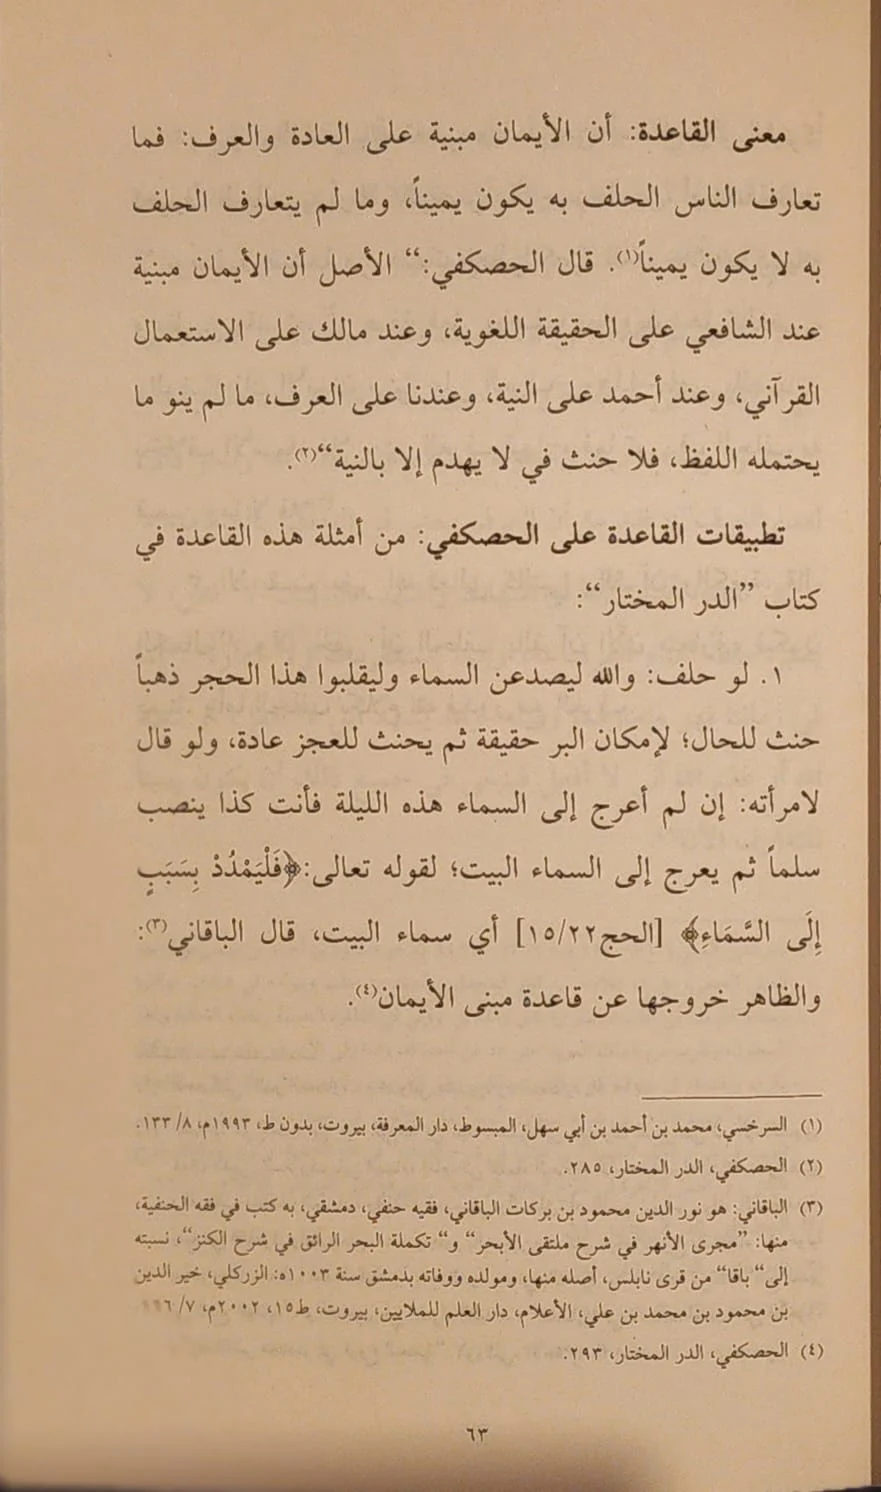 معنى القاعدة: أن الأيمان مبنية على العادة والعرف: فما
تعارف الناس الحلف به يكون يميناً، وما لم يتعارف الحلف
به لا يكون يميناً(١). قال الحصكفي:“ الأصل أن الأيمان مبنية
عند الشافعي على الحقيقة اللغوية، وعند مالك على الاستعمال
القرآني، وعند أحمد على النية، وعندنا على العرف، ما لم ينو ما
يحتمله اللفظ، فلا حنث في لا يهدم إلا بالنية“(٢).
تطبيقات القاعدة على الحصكفي: من أمثلة هذه القاعدة في
كتاب ”الدر المختار“:
١. لو حلف: والله ليصدعن السماء وليقلبوا هذا الحجر ذهباً
حنث للحال؛ لإمكان البر حقيقة ثم يحنث للعجز عادة، ولو قال
لامرأته: إن لم أعرج إلى السماء هذه الليلة فأنت كذا ينصب
سلماً ثم يعرج إلى السماء البيت؛ لقوله تعالى:﴿فَلْيَمْدُدْ بِسَبَبٍ
إِلَى السَّمَاءِ﴾ [الحج١٥/٢٢] أي سماء البيت، قال الباقاني(٣):
والظاهر خروجها عن قاعدة مبنى الأيمان(٤).
(١) السرخسي، محمد بن أحمد بن أبي سهل، المبسوط، دار المعرفة، بيروت، بدون ط، ١٩٩٣م، ٨/ ١٣٣.
(٢) الحصكفي، الدر المختار، ٢٨٥.
(٣) الباقاني: هو نور الدين محمود بن بركات الباقاني، فقيه حنفي، دمشقي، به كتب في فقه الحنفية،
منها: ”مجرى الأنهر في شرح ملتقى الأبحر“ و“ تكملة البحر الرائق في شرح الكنز“، نسبته
إلى“ باقا“ من قرى نابلس، أصله منها، ومولده ووفاته بدمشق سنة ١٠٠٣ه: الزركلي، خير الدين
بن محمود بن محمد بن علي، الأعلام، دار العلم للملايين، بيروت، ط١٥، ٢٠٠٢م، ٧/
(٤) الحصكفي، الدر المختار، ٢٩٣.
٦٣